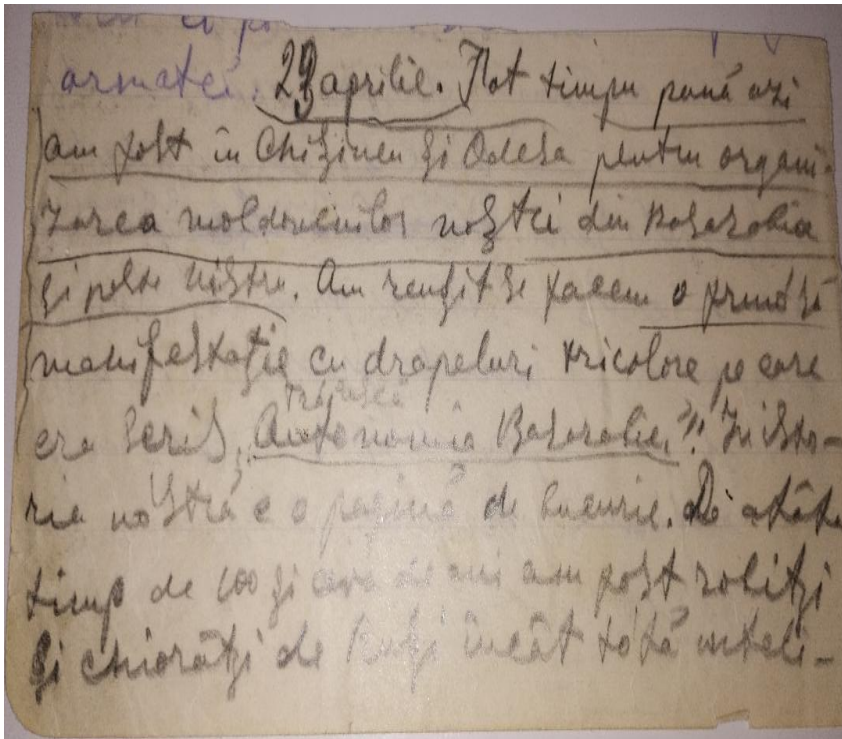 armatei. 29 aprilie. Tot timpu pănă azi
am fost în Chișineu și Odesa pentru organi-
zarea moldovenilor noștri din Basarabia
și peste Nistru. Am reușit se facem o frumósă
manifestație cu drapeluri tricolore pe care
era scris „Trăiască Autonomia Basarabiei"!! În isto-
ria nóstră e o pagină de bucurie. De atâta
timp de 100 și ceva de ani am fost robiți
și chiorâți de Ruși încât tótă inteli-